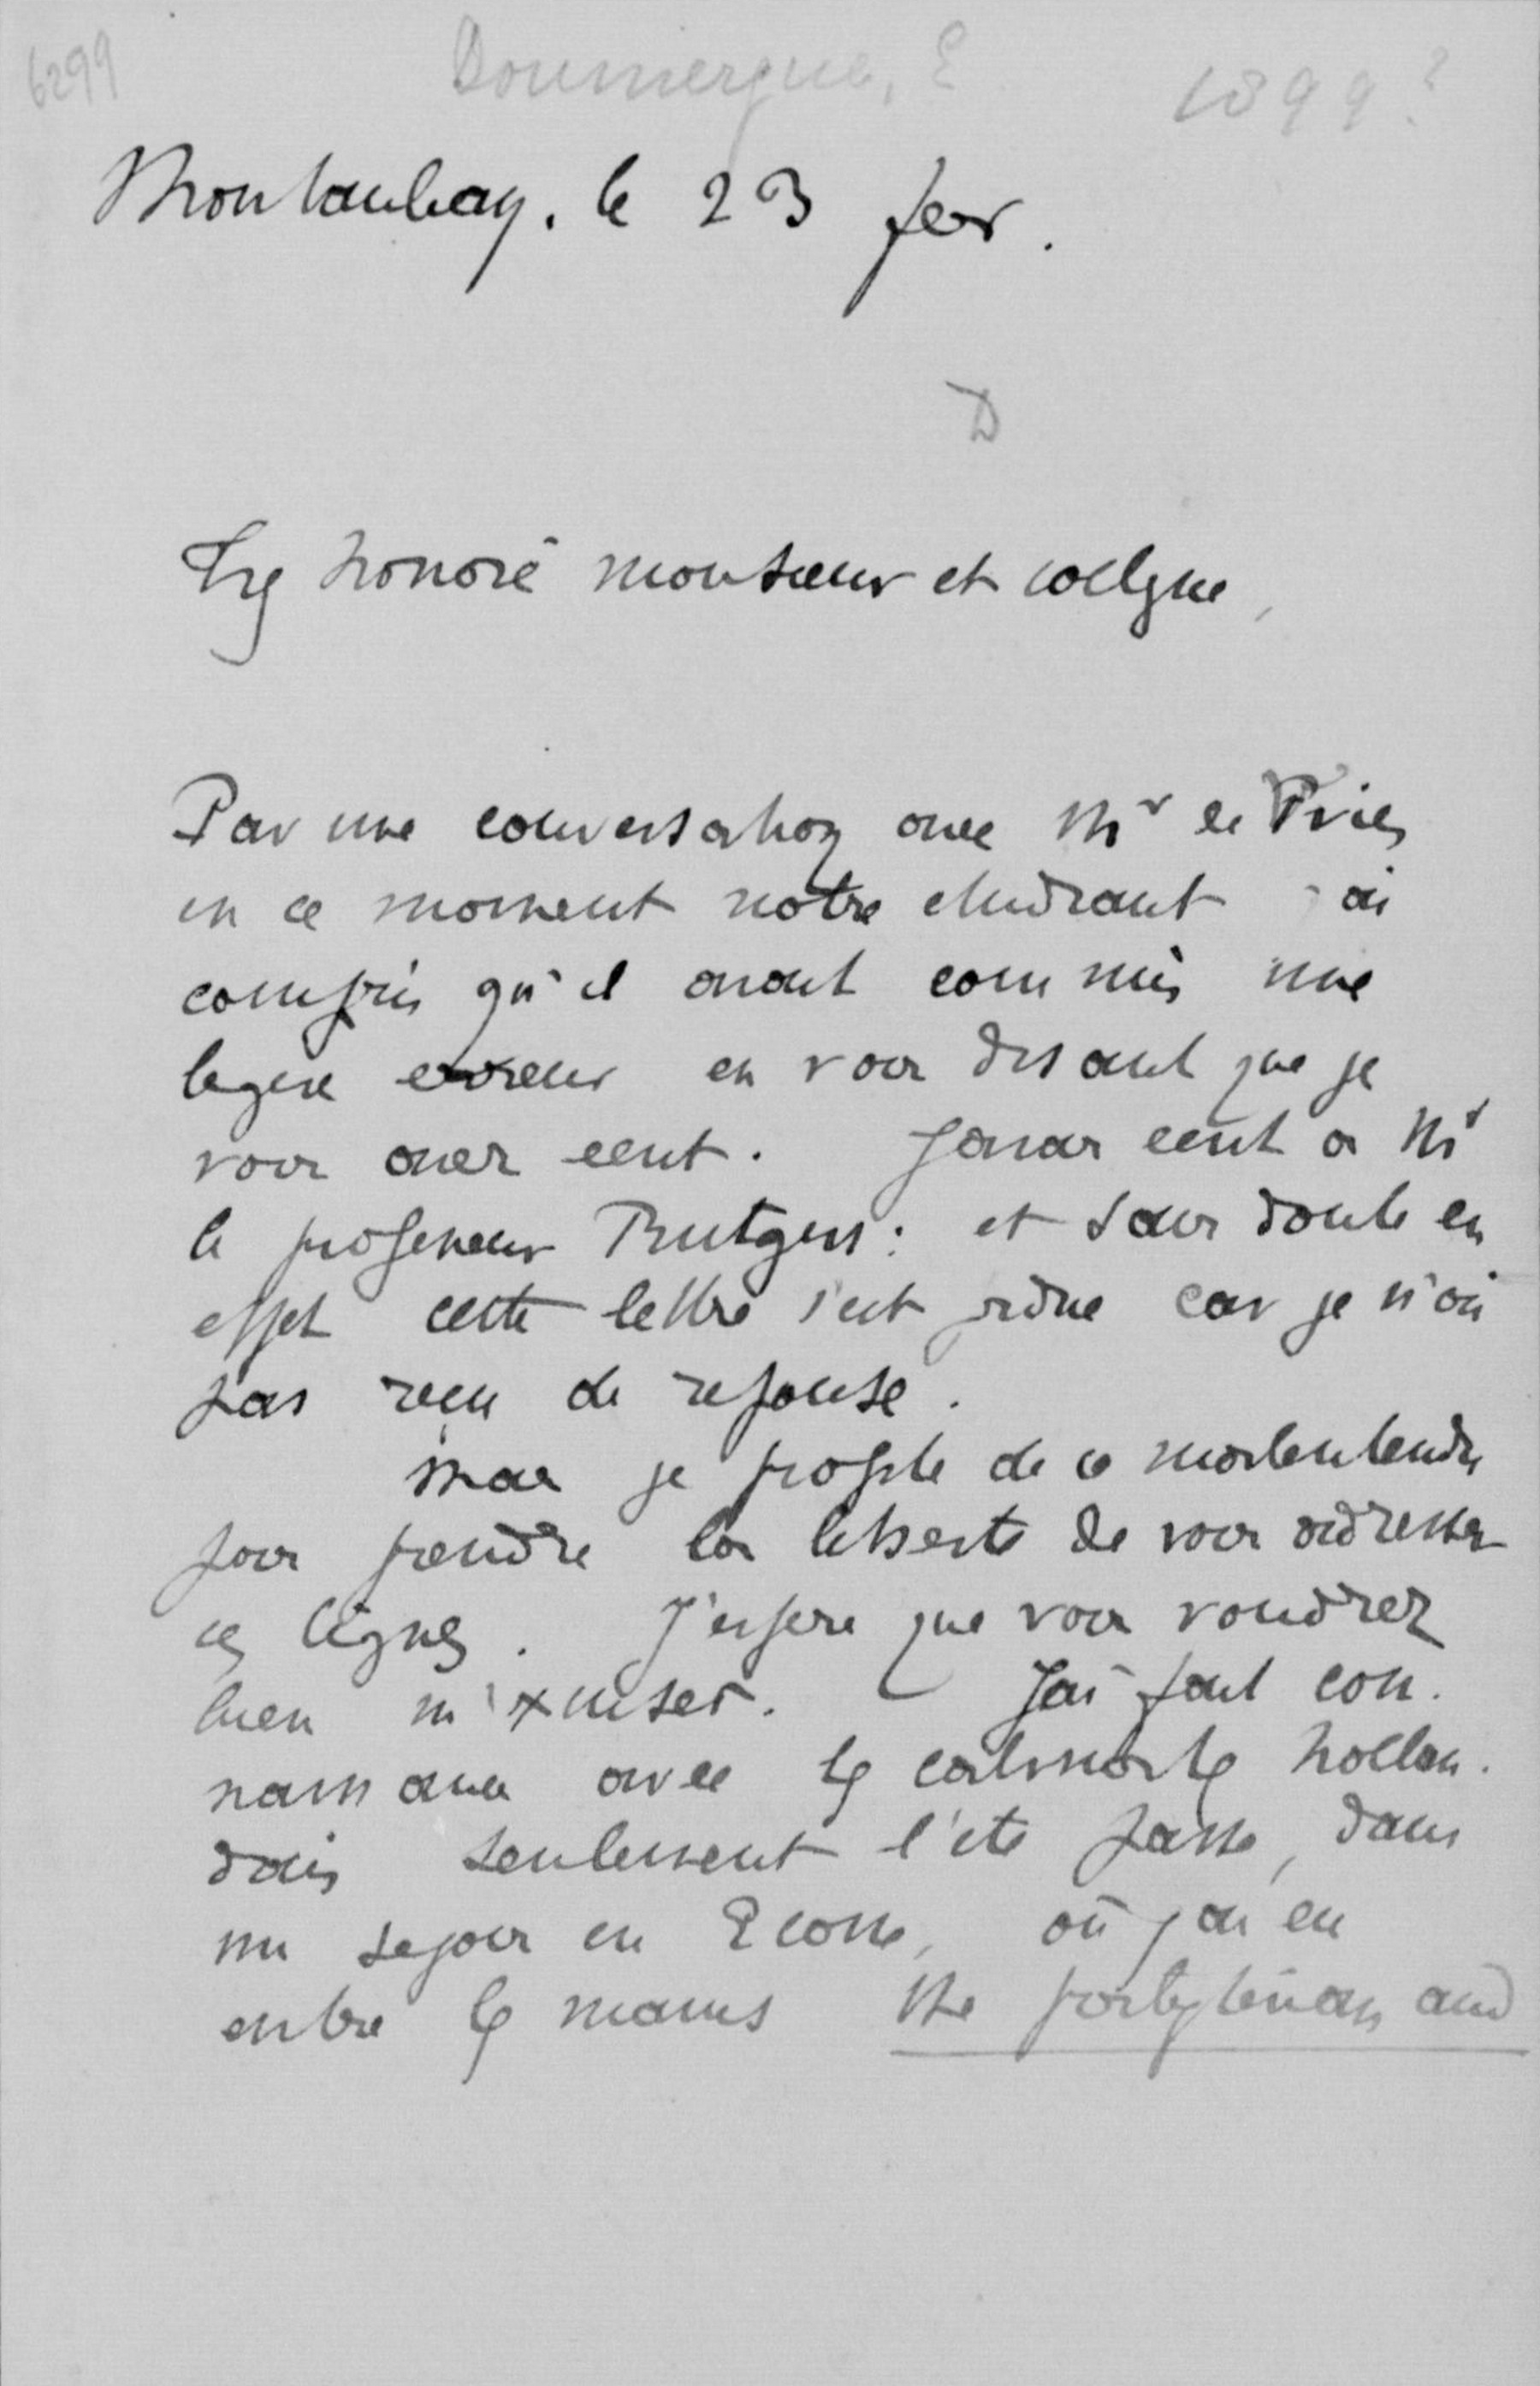 6299
Doumergue, E
1899?
Montauban. le 23 fev.
D
Tres honoré monsieur et collegue,
Par une conversation avec Mr de Vries
en ce moment notre etudiant j'ai
compris qu'il avait commis une
legere erreur en vous disant que je
vous avez ecrit. J'avais ecrit a Mr
le professeur Rutgers: et sans doute en
effet cette lettre s'est perdue car je n'ai
pas reçu de reponse.
Mais je profite de ce malentendu
pour prendre la liberte de vous adresser
ces lignes. J'espere que vous voudrez
bien m'excuser. J'ai fait con.
naissance avec les calvinistes hollan.
dais seulement l'ete passe, dans
un sejour en Ecosse, où j'ai eu
entre les mains the presbyterian and